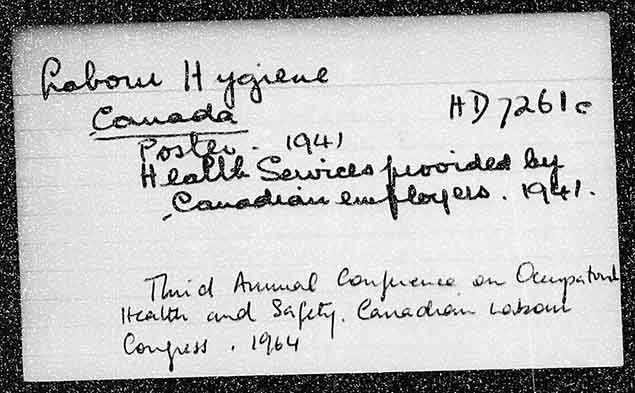 Labour Hygiene
Canada HD7261c
Poster. 1941
Health Services provided by
Canadian employers. 1941.
Third Annual Conference on Occupational
Health and Safety. Canadian Labour
Congress. 1964